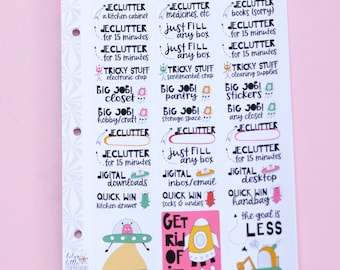 DECLUTTER
a kitchen cabinet
DECLUTTER
medicines, etc
DECLUTTER
books (sorry)
DECLUTTER
for 15 minutes
just FILL
any box
DECLUTTER
for 15 minutes
DECLUTTER
for 15 minutes
just FILL
any box
DECLUTTER
for 15 minutes
TRICKY STUFF
electronic crap
TRICKY STUFF
sentimental crap
TRICKY STUFF
cleaning supplies
BIG JOB!
closet
BIG JOB!
pantry
BIG JOB!
stickers
BIG JOB!
hobby/craft
BIG JOB!
storage space
BIG JOB!
any closet
DECLUTTER
for 15 minutes
just FILL
any box
DECLUTTER
for 15 minutes
DIGITAL
downloads
DIGITAL
inbox/email
DIGITAL
desktop
QUICK WIN
kitchen drawer
QUICK WIN
socks & undies
QUICK WIN
handbag
GET
RID
OF
the goal is
LESS